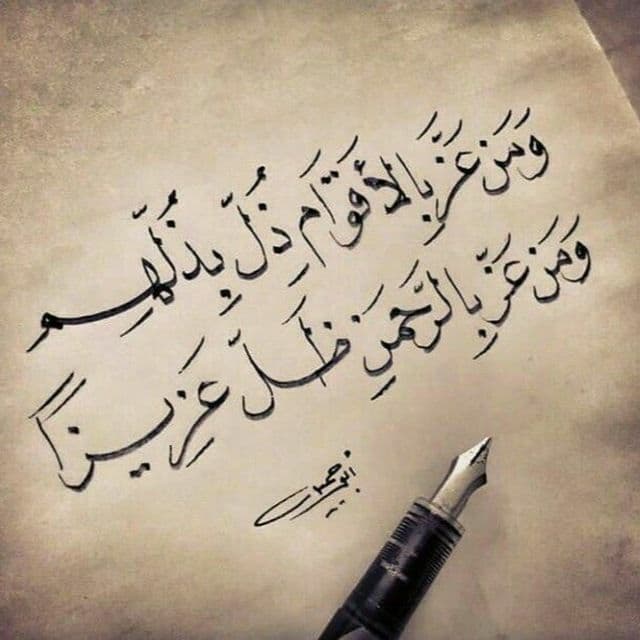 وَمَن عَزَّ بَالأَقوَامِ ذُلّ بِذُلِّهِم
وَمَن عَزَّ بِالرَّحمَنِ ظَلَّ عَزِيزًا